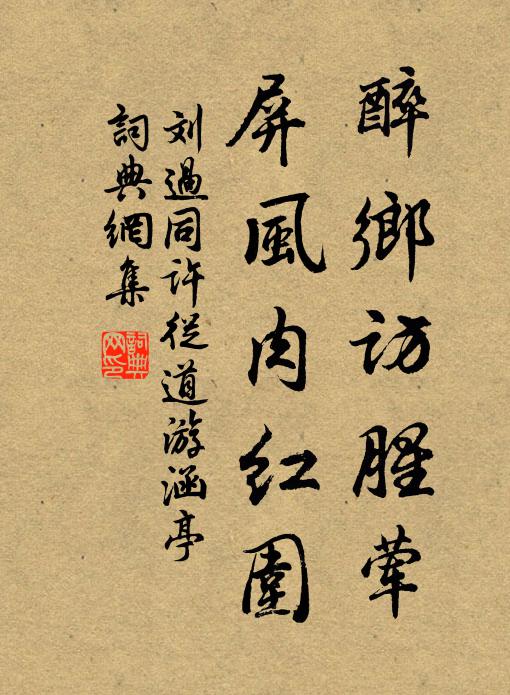 醉鄉訪腥葷
屏風肉紅圍
刘過同許從道游涵亭
詞典網集
詞典
网印